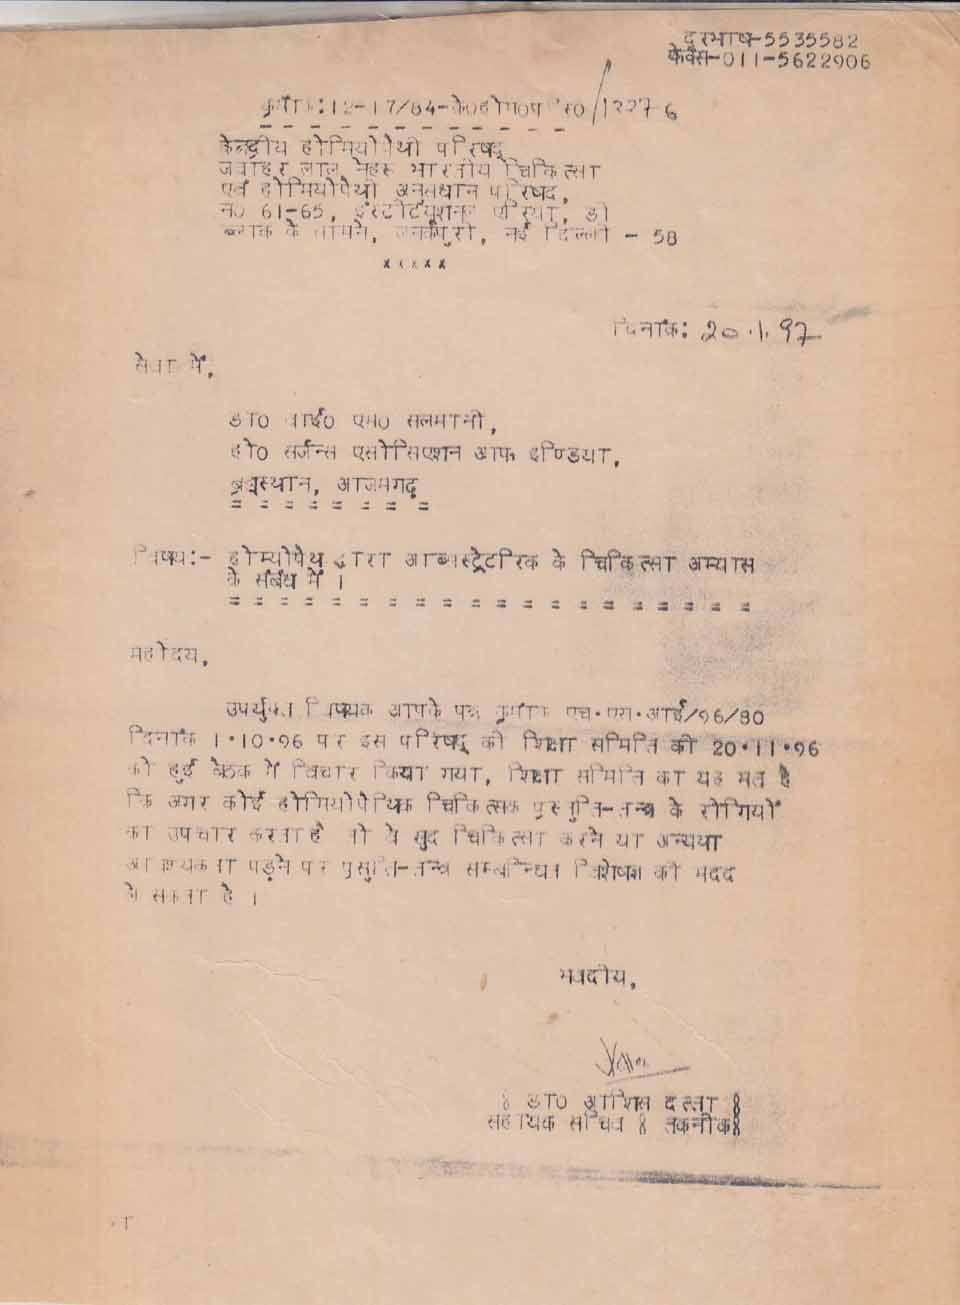 दूरभाष-5535582
फेक्स-011-5622906
क्रमांक:12-17/84-के0हो0प0/12276
केन्द्रीय होमियोपैथी परिषद्
जवाहर लाल नेहरू भारतीय चिकित्सा
एवं होमियोपैथी अनुसंधान परिषद,
न0 61-65, इंस्टीट्यूशनल एरिया, डी
ब्लाक के सामने, जनकपुरी, नई दिल्ली - 58
दिनांक: 20.1.97
सेवा में,
डा0 वाई0 एम0 सलमानी,
हो0 सर्जन्स एसोसिएशन आफ इण्डिया,
ब्रह्मस्थान, आजमगढ़
विषय:- होम्योपैथ द्वारा आब्सट्रेटरिक के चिकित्सा अभ्यास
के संबंध में ।
महोदय,
उपर्युक्त विषयक आपके पत्र क्रमांक एच.एस.आई/96/80
दिनांक 1.10.96 पर इस परिषद् की शिक्षा समिति की 20.11.96
को हुई बैठक में विचार किया गया, शिक्षा समिति का यह मत है
कि अगर कोई होमियोपैथिक चिकित्सक प्रसुति-तन्त्र के रोगियों
का उपचार करता है तो वे खुद चिकित्सा करने या अन्यथा
आवश्यकता पड़ने पर प्रसुति-तन्त्र सम्बन्धित विशेषज्ञ की मदद
ले सकता है ।
भवदीय,
डा0 आशिस दत्ता
सहायक सचिव तकनीक